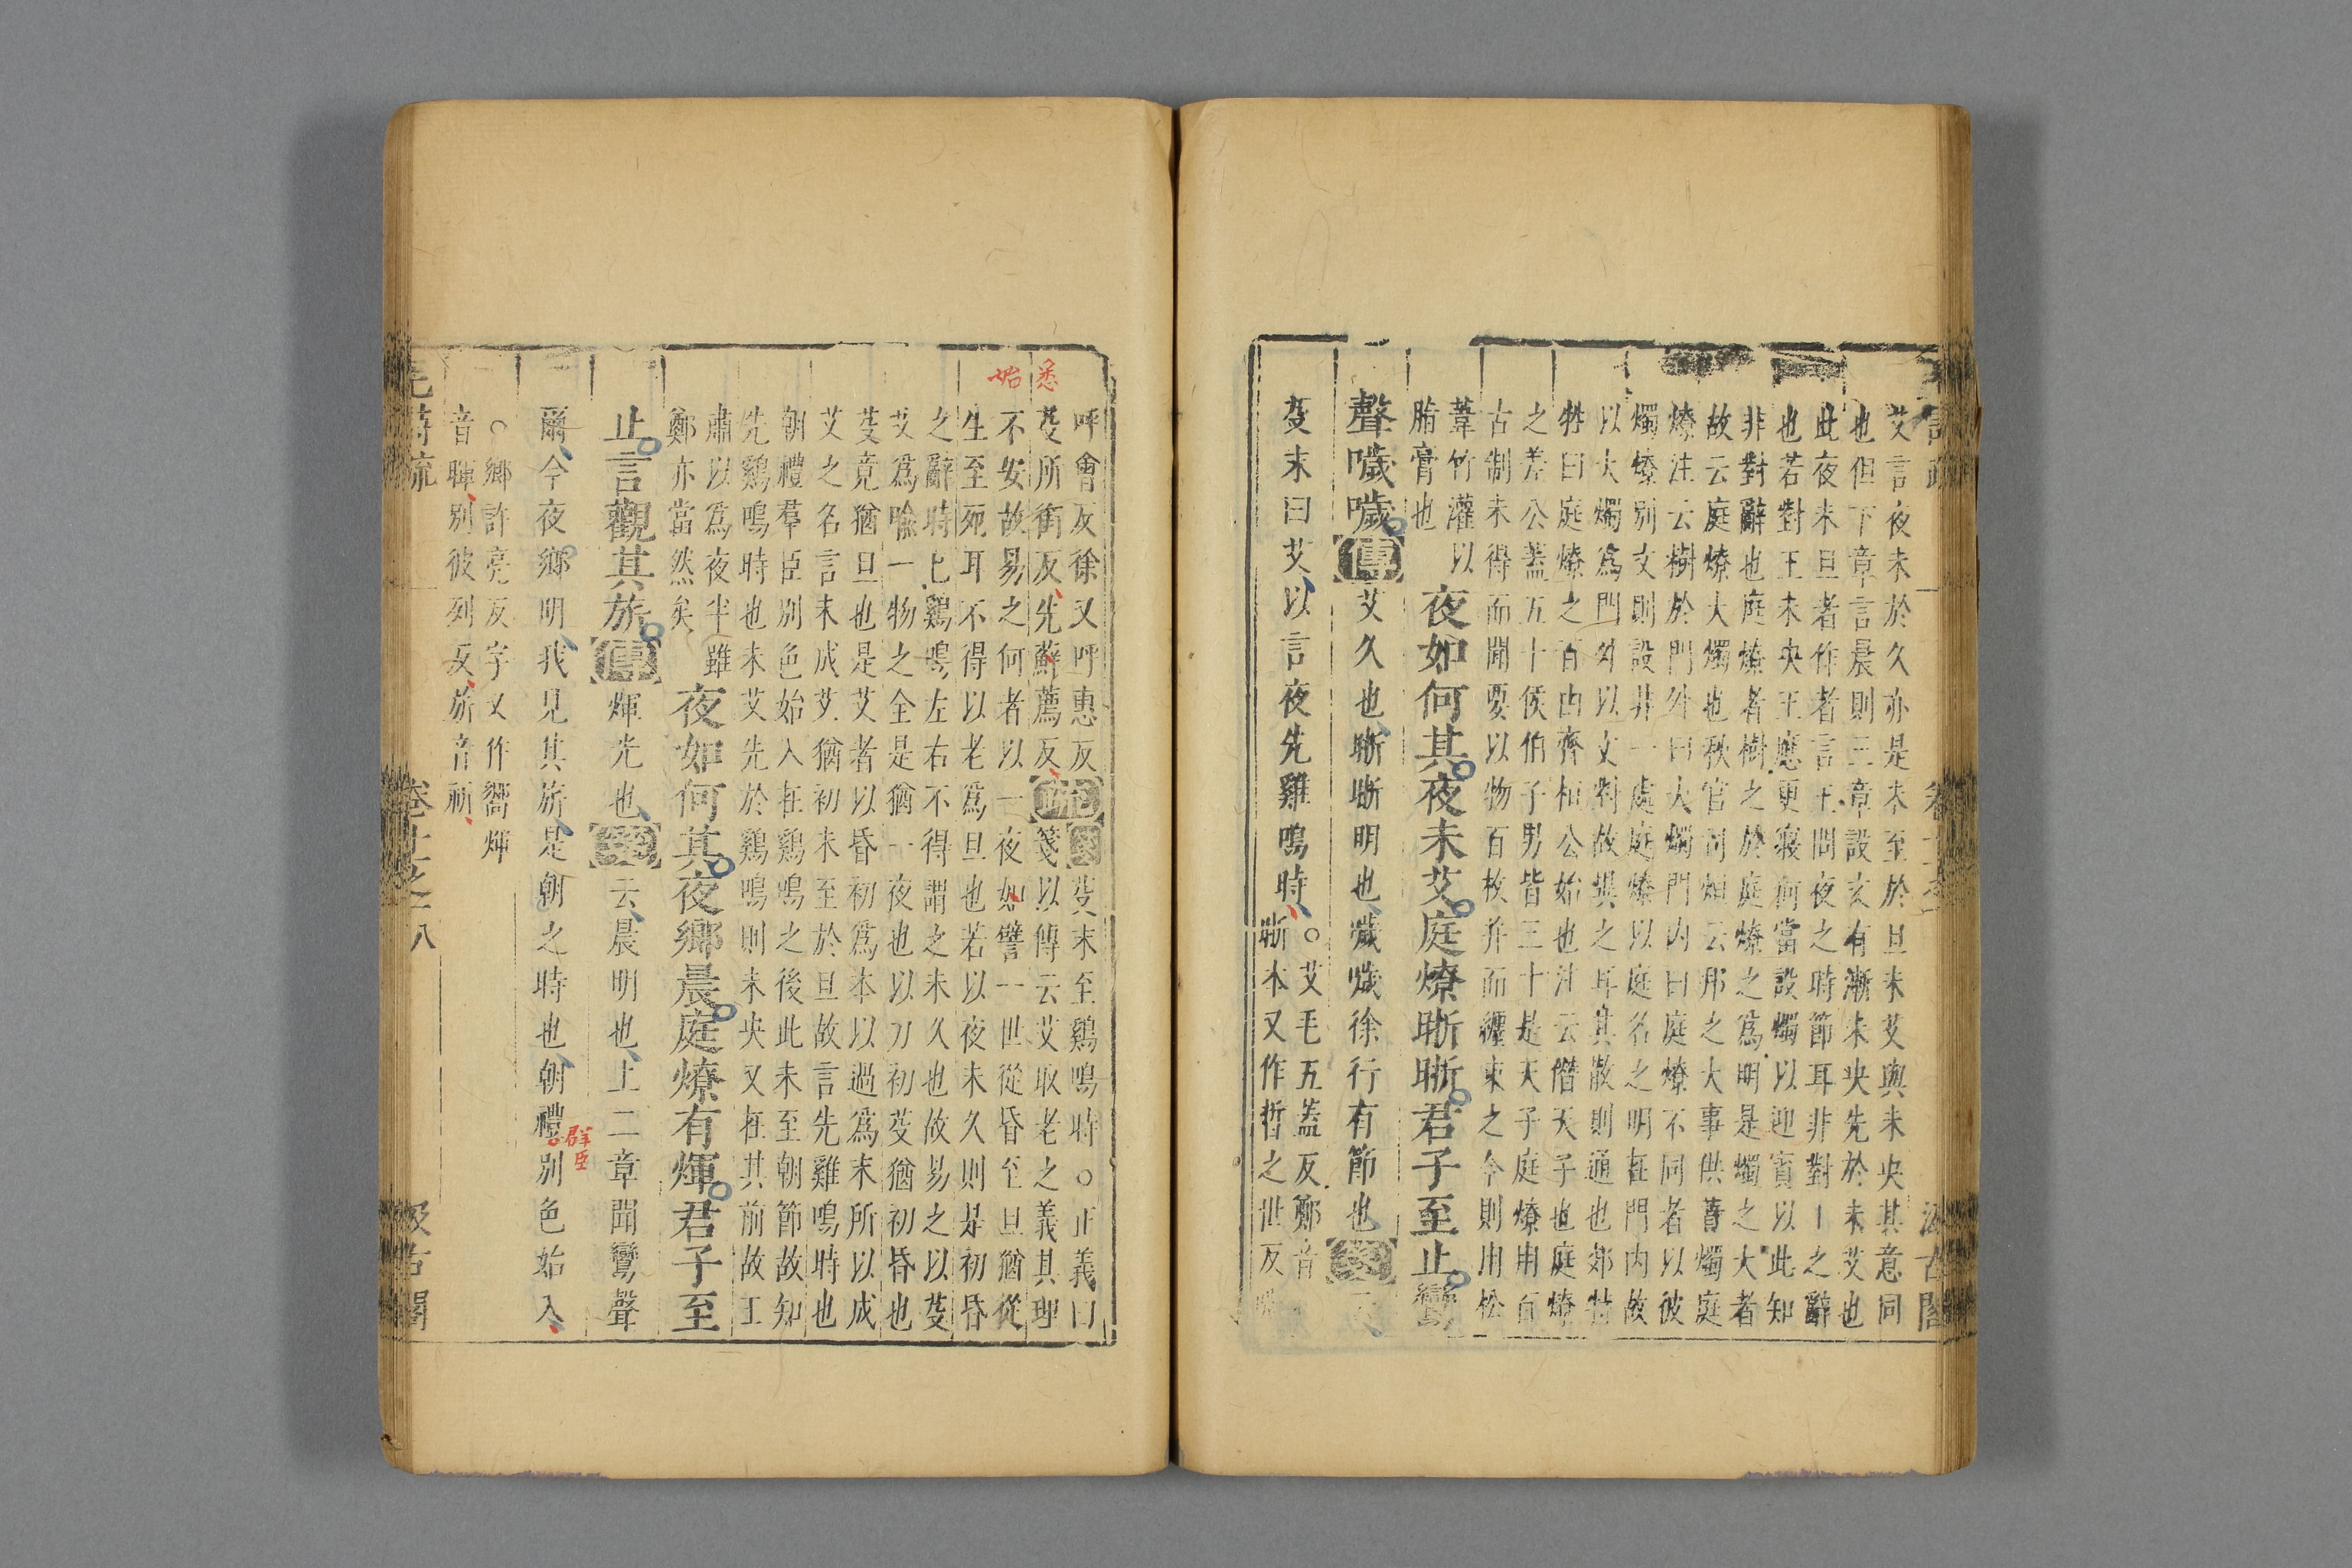 艾言夜未於久亦是未至於旦未艾與未央其意同
也但下章言晨則三章設文有漸未央先於未艾也
此夜未旦者作者言王問夜之時節耳非對王之辭
也若對王未央王應更寢何當設燭以迎賓以此知
非對辭也庭燎者樹之於庭燎之為明是燭之大者
故云庭燎大燭也秋官司烜云邦之大事供蕡燭庭
燎注云樹於門外曰大燭門內曰庭燎不同者以彼
燭燎別文則設非一處庭燎以庭名之明在門內故
以大燭為門外以文對故異之耳其散則通也郊特
牲曰庭燎之百由齊桓公始也注云僭天子也庭燎
之差公蓋五十侯伯子男皆三十是天子庭燎用百
古制未得而聞要以物百枚并而纏束之今則用松
葦竹灌以
脂膏也
夜如何其夜未艾庭燎晣晣君子至止鸞
聲噦噦傳艾久也晣晣明也噦噦徐行有節也箋云
芟末曰艾以言夜先雞鳴時
○艾毛五蓋反鄭音
晣本又作晢之世反噦
呼會反又呼惠反
芟所銜反先蘇薦反疏箋以傳云艾取老之義其理
不安故易之何者以一夜如譬一世從昏至旦猶從
生至死耳不得以老為旦也若以夜未久則是初昏
之辭時上鷄鳴左右不得謂之未久也故易之以芟
艾為喻一物之全是猶一夜也以刀初芟猶初昏也
芟竟猶旦也是艾者以昏初為本以過為末所以成
艾之名言未成艾猶初未至於旦故言先雞鳴時也
朝禮羣臣別色始入在鷄鳴之後此未至朝節故知
先鷄鳴時也未艾先於鷄鳴則未央又在其前故王
肅以為夜半雖
鄭亦當然矣
夜如何其夜鄉晨庭燎有煇君子至
止言觀其旂傳煇光也箋云晨明也上二章聞鸞聲
爾今夜鄉明我見其旂是朝之時也朝禮別色始入
○鄉許亮反字又作嚮煇
音暉別彼列反旂音祈
毛詩疏
卷十一之一
八
汲古閣
悉
始
群臣